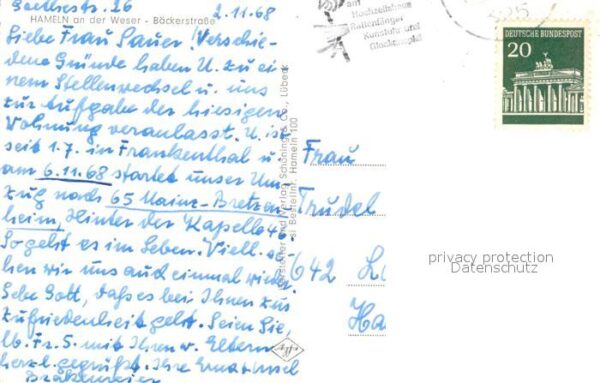 Goethestr. 26
HAMELN an der Weser - Bäckerstraße
2.11.68
Liebe Frau Sauer! Verschie-
dene Gründe haben U. zu ei
nem Stellenwechsel u. uns
zur Aufgabe der hiesigen
Wohnung veranlasst. U. ist
seit 1.7. in Frankenthal u.
am 6.11.68 startet unser Um
zug nach 65 Mainz-Bretzen
heim, Hinter der Kapelle 4
So geht es im Leben. Viell. se
hen wir uns auch einmal wieder
Gebe Gott, daß es bei Ihnen zur
Zufriedenheit geht. Seien Sie,
lb. Fr. S. mit Ihren v. Eltern
herzl. gegrüßt. Ihre
Hersteller und Verlag Schöning & Co., Lübeck
Bestellnr. Hameln 100
am
Hochzeitshaus
Rattenfänger
Kunstuhr und
Glockenspiel
DEUTSCHE BUNDESPOST
20
Frau
Trudel
642
Ha
privacy protection
Datenschutz